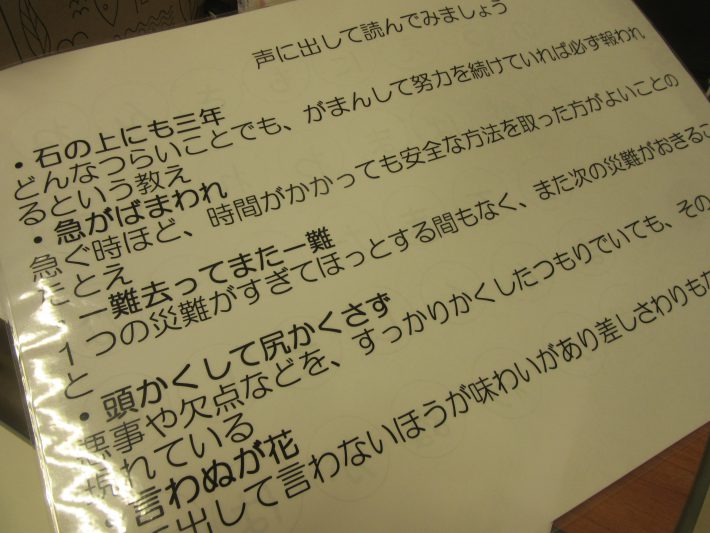 声に出して読んでみましょう
・石の上にも三年
どんなつらいことでも、がまんして努力を続けていれば必ず報われ
るという教え
・急がばまわれ
急ぐ時ほど、時間がかかっても安全な方法を取った方がよいことの
たとえ
・一難去ってまた一難
1つの災難がすぎてほっとする間もなく、また次の災難がおきるこ
と
・頭かくして尻かくさず
悪事や欠点などを、すっかりかくしたつもりでいても、その
現れている
・言わぬが花
て出して言わないほうが味わいがあり差しさわりもな